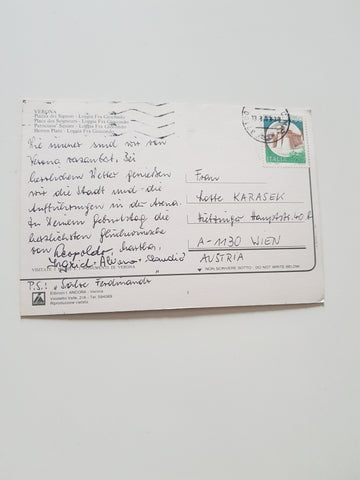 VERONA
Piazza dei Signori - Loggia Fra Giocondo
Place des Seigneurs - Loggia Fra Giocondo
Patricians' Square - Loggia Fra Giocondo
Herren Platz - Loggia Fra Giocondo
Wie immer sind wir von
Verona verzaubert. Bei
herrlichem Wetter genießen
wir die Stadt und die
Aufführungen in der Arena.
Zu Deinem Geburtstag die
herzlichsten Glückwünsche
von Leopoldo, Martha,
Ingrid + Alvaro + Claudio
P.S.: "Salve Ferdinando"
ITALIA
Frau
Lotte KARASEK
Hietzinger Hauptstr. 40
A-1130 WIEN
AUSTRIA
NON SCRIVERE SOTTO - DO NOT WRITE BELOW
Edizioni L'ANCORA - Verona
Riproduzione vietata